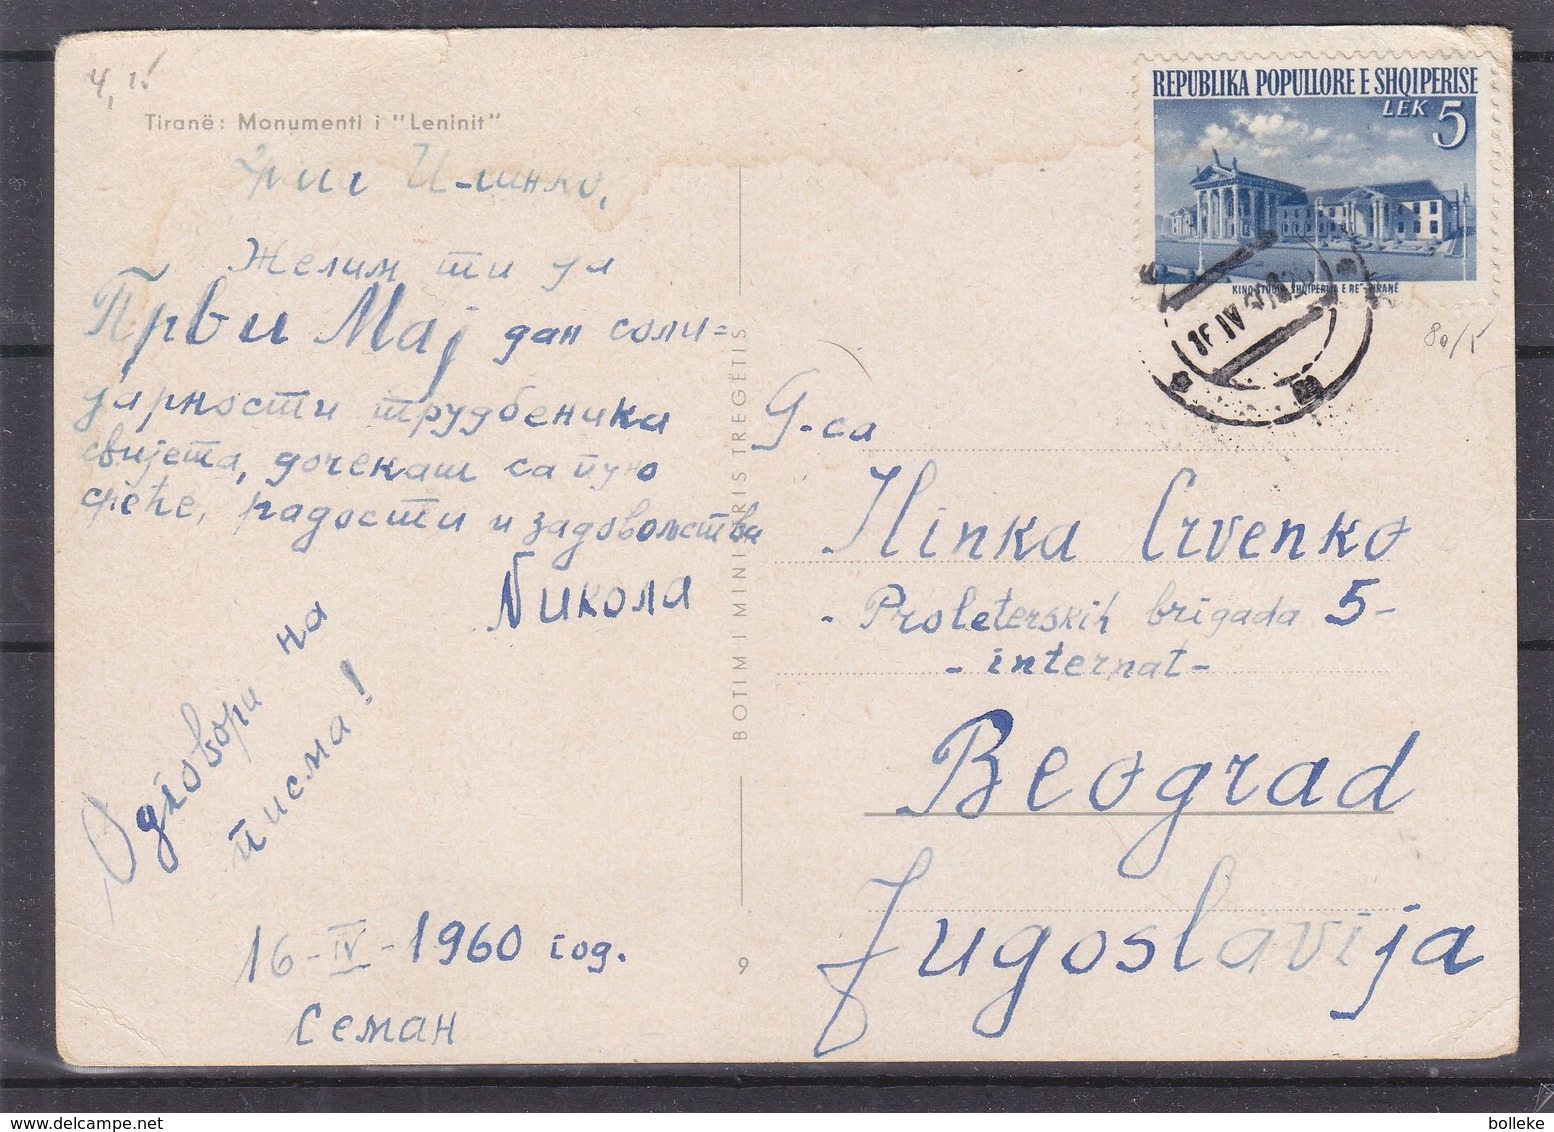 Tiranë: Monumenti i "Leninit"
Илинко,
Желим ти да
Први Мај дан соли=
дарности трудбеника
свијета, дочекаш са пуно
среће, радости и задовољства
Никола
Одговори на
писма!
16-IV-1960 год.
Семан
BOTIMI MINISTRIS TREGËTIS
9
REPUBLIKA POPULLORE E SHQIPERISE
LEK 5
KINO STUDIO "SHQIPERIJA E RE" TIRANË
80/
G-ca
Ilinka Crvenko
Proleterskih brigada 5-
- internat -
Beograd
Jugoslavija
bolleke